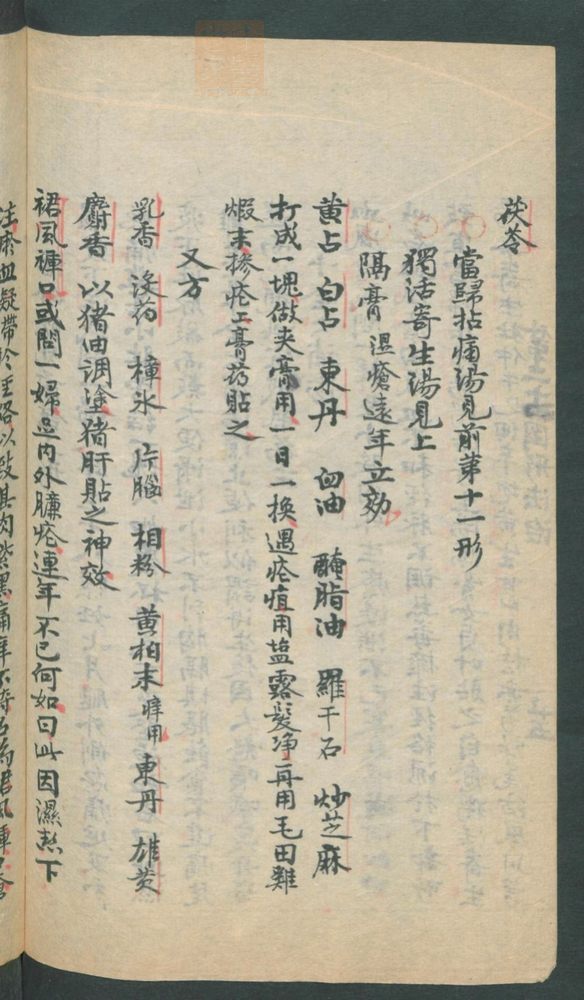 茯苓
當歸拈痛湯見前第十一形
獨活寄生湯見上
隔膏 濕瘡遠年立効
黃占 白占 東丹 血油 醃脂油 羅干石 炒芝麻
打成一塊做夾膏用一日一換遇瘡疽用盐露髮净再用毛田雞
煅末摻疮上膏药貼之
又方
乳香 没药 樟氷 片腦 相粉 黃柏末 痒用 東丹 雄黃
麝香 以猪油调塗猪肝貼之神效
裙風褲口或問一婦足内外臁疮連年不已何如曰此因濕熱下
注瘀血凝帶於 經络以致其肉紫黑痛痒不